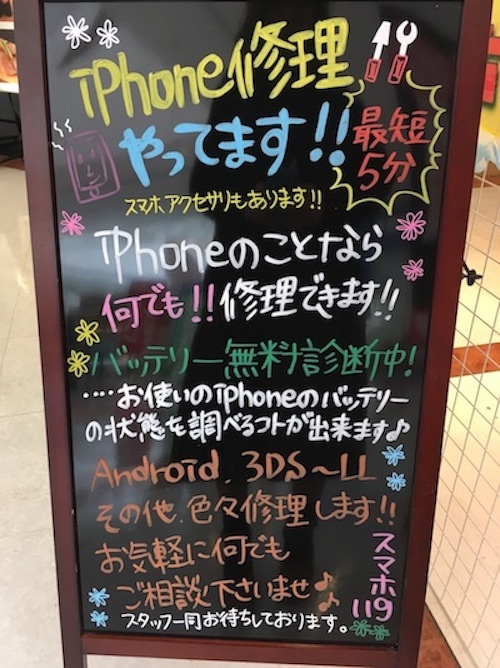 iPhone修理
やってます!!
最短
5分
スマホアクセサリもあります!!
iPhoneのことなら
何でも!!修理できます!!
バッテリー無料診断中!
....お使いのiPhoneのバッテリー
の状態を調べるコトが出来ます♪
Android.3DS~LL
その他.色々修理します!!
お気軽に何でも
ご相談下さいませ♪♪
スマホ
119
スタッフ一同お待ちしております。